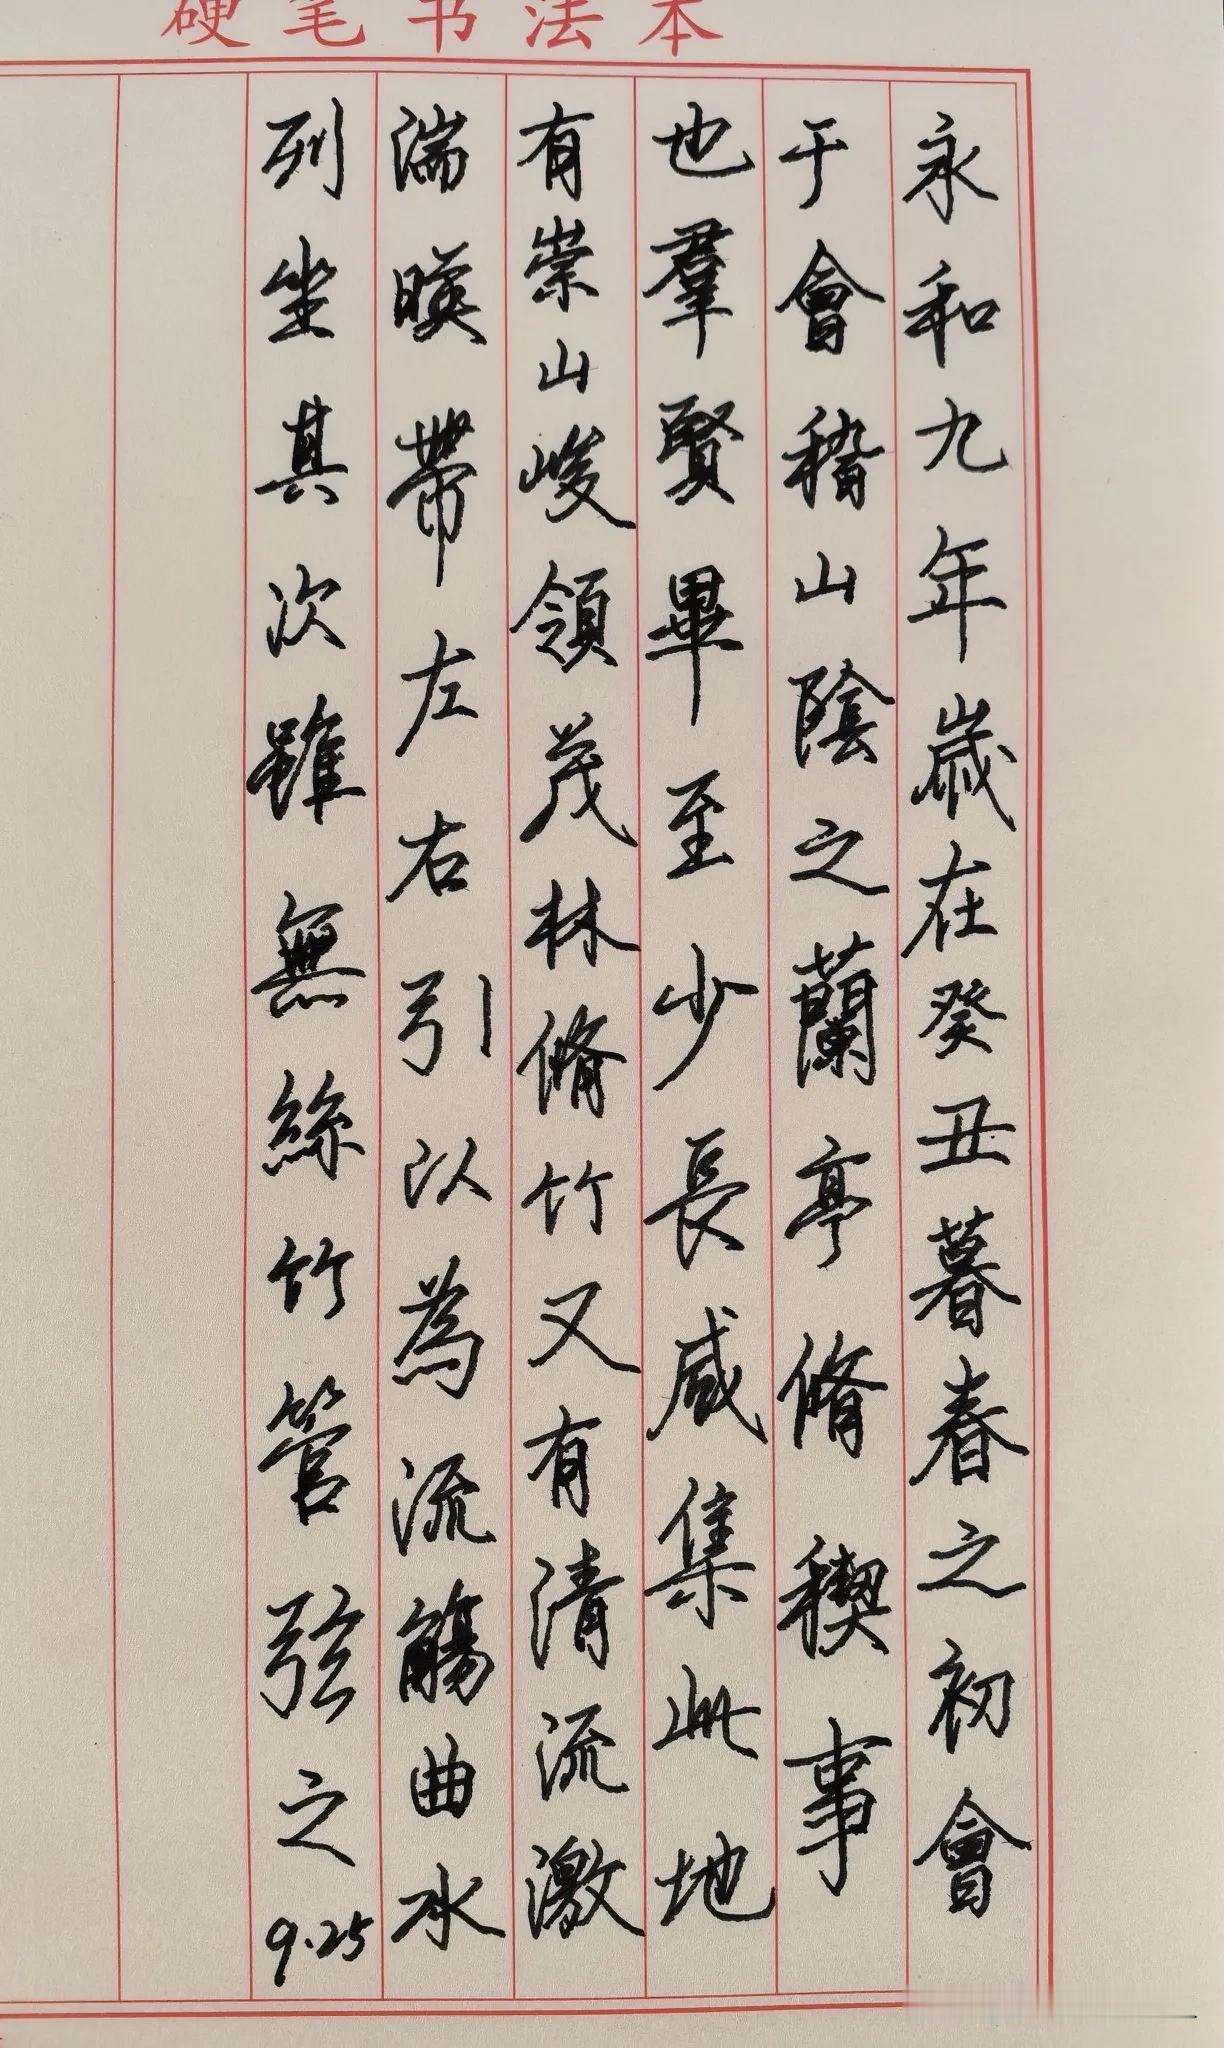 硬笔书法本
永和九年歲在癸丑暮春之初會
于會稽山陰之蘭亭脩稧事
也羣賢畢至少長咸集此地
有崇山峻領茂林脩竹又有清流激
湍暎帶左右引以為流觴曲水
列坐其次雖無絲竹管弦之
9.25